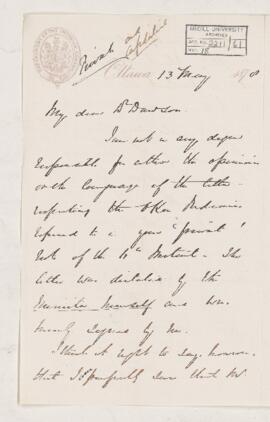 McGILL UNIVERSITY
ARCHIVES
ACC. NO. 2211 / 61
REF. 18
Private and
Ottawa 13 May
My dear Dr Dawson
I am not in any degree
responsible for either the opinions
or the language of the letter
respecting the
referred to in your "private"
note of the 11th Instant. The
letter was dictated by the
Minister himself and was
merely signed by me.
I think it right to say, however,
that I perfectly that